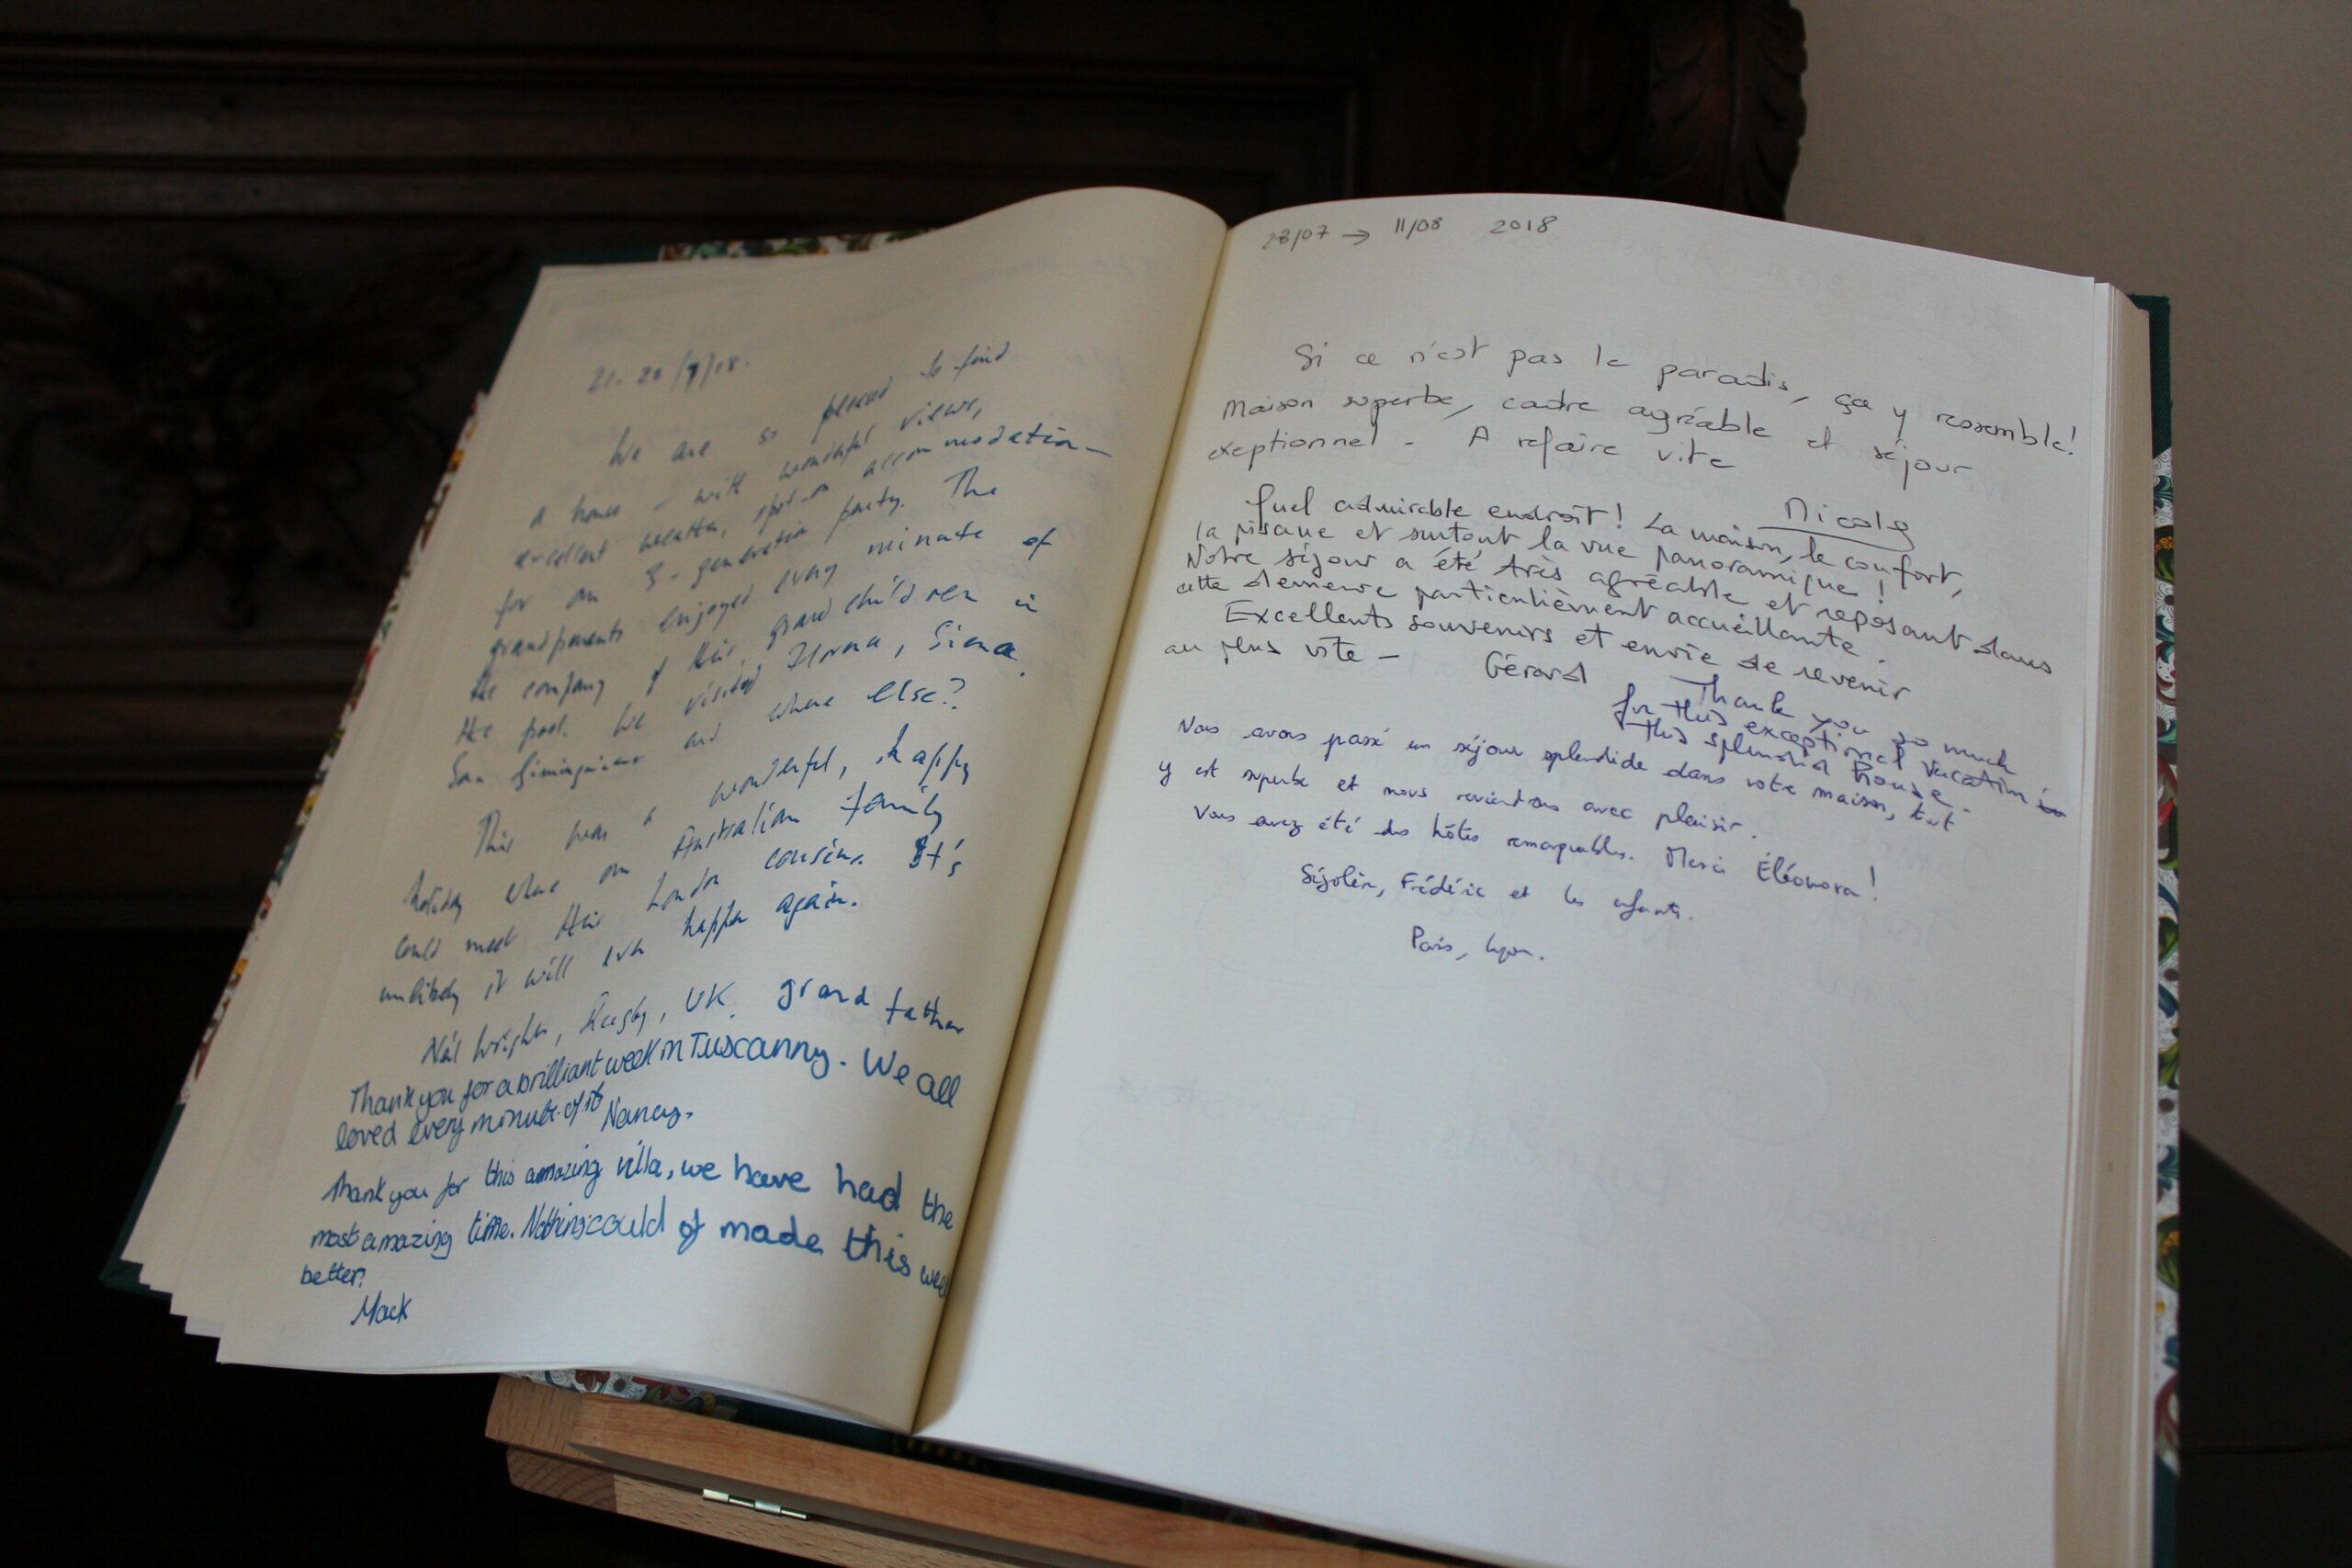 21-28/7/18.
We are so pleased to find
a house – with wonderful views,
excellent weather, spot-on accommodation
for our 3-generation party. The
grandparents enjoyed every minute of
the company of their grandchildren in
the pool. We visited Siena,
San Gimignano and where else?
This was a wonderful, happy
holiday where our Australian family
could meet their London cousins. It's
unlikely it will ever happen again.
Neil Wright, Rugby, UK. grand father
Thank you for a brilliant week in Tuscanny. We all
loved every minute of it Nancy.
Thank you for this amazing villa, we have had the
most amazing time. Nothing could of made this wee
better.
Mack
28/07 → 11/08 2018
Si ce n'est pas le paradis, ça y ressemble!
Maison superbe, cadre agréable et séjour
exeptionnel - A refaire vite
Nicole
Quel admirable endroit! La maison, le confort,
la piscine et surtout la vue panoramique!
Notre séjour a été très agréable et reposant dans
cette demeure particulièrement accueillante.
Excellents souvenirs et envie de revenir
au plus vite - Gérard
Thank you so much
for this exceptional vacation in
this splendid house.
Nous avons passé un séjour splendide dans votre maison, tout
y est superbe et nous reviendrons avec plaisir.
Vous avez été des hôtes remarquables. Merci Éléonora!
Frédéric et les enfants.
Paris, Lyon.